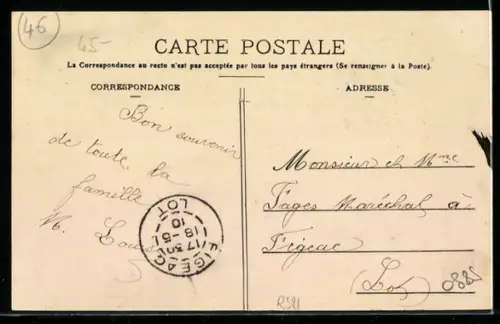 46
45-
CARTE POSTALE
La Correspondance au recto n'est pas acceptée par tous les pays étrangers (Se renseigner à la Poste).
CORRESPONDANCE
ADRESSE
Bon souvenir
de toute la
famille
Monsieur et Mme
Fages Maréchal à
Figeac
(Lot)
FIGEAC
17 30
18 -5
10
LOT